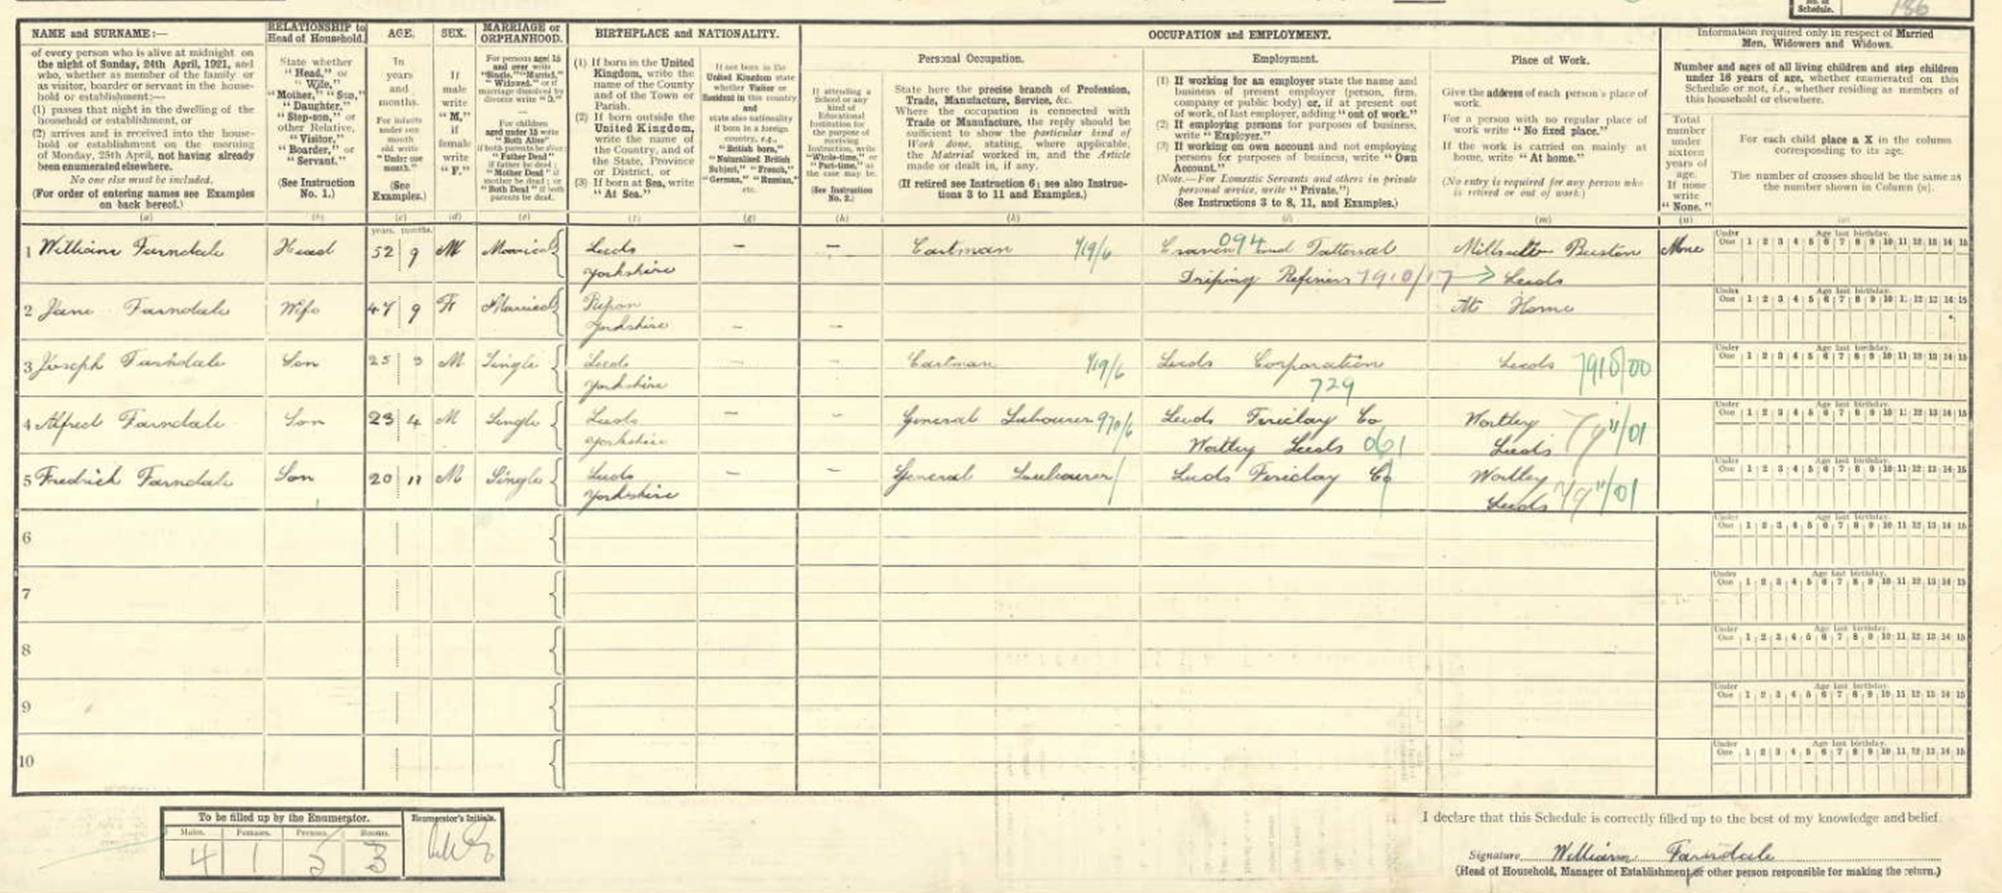 No. of
Schedule. 186
NAME and SURNAME:—
of every person who is alive at midnight on
the night of Sunday, 24th April, 1921, and
who, whether as member of the family or
as visitor, boarder or servant in the house-
hold or establishment:—
(1) passes that night in the dwelling of the
household or establishment, or
(2) arrives and is received into the house-
hold or establishment on the morning
of Monday, 25th April, not having already
been enumerated elsewhere.
No one else must be included.
(For order of entering names see Examples
on back hereof.)
(a)
RELATIONSHIP to
Head of Household.
State whether
"Head," or
"Wife,"
"Mother," "Son,"
"Daughter,"
"Step-son," or
other Relative,
"Visitor,"
"Boarder," or
"Servant."
(See Instruction
No. 1.)
(b)
AGE.
In
years
and
months.
For infants
under one
month
old write
"Under one
month."
(See
Examples.)
(c)
years. months.
SEX.
If
male
write
"M,"
if
female
write
"F."
(d)
MARRIAGE or
ORPHANHOOD.
For persons aged 15
and over write
"Single," "Married,"
"Widowed," or if
marriage dissolved by
divorce write "D."
For children
aged under 15 write
"Both Alive"
if both parents be alive;
"Father Dead"
if father be dead;
"Mother Dead" if
mother be dead; or
"Both Dead" if both
parents be dead.
(e)
BIRTHPLACE and NATIONALITY.
(1) If born in the United
Kingdom, write the
name of the County
and of the Town or
Parish.
(2) If born outside the
United Kingdom,
write the name of
the Country, and of
the State, Province
or District, or
(3) If born at Sea, write
"At Sea."
(f)
If not born in the
United Kingdom state
whether Visitor or
Resident in this country
and
state also nationality
if born in a foreign
country, e.g.,
"British born,"
"Naturalised British
Subject," "French,"
"German," "Russian,"
etc.
(g)
If attending a
School or any
kind of
Educational
Institution for
the purpose of
receiving
Instruction, write
"Whole-time," or
"Part-time," as
the case may be.
(See Instruction
No. 2.)
(h)
OCCUPATION and EMPLOYMENT.
Personal Occupation.
State here the precise branch of Profession,
Trade, Manufacture, Service, &c.
Where the occupation is connected with
Trade or Manufacture, the reply should be
sufficient to show the particular kind of
Work done, stating, where applicable,
the Material worked in, and the Article
made or dealt in, if any.
(If retired see Instruction 6; see also Instruc-
tions 3 to 11 and Examples.)
(k)
Employment.
(1) If working for an employer state the name and
business of present employer (person, firm,
company or public body) or, if at present out
of work, of last employer, adding "out of work."
(2) If employing persons for purposes of business,
write "Employer."
(3) If working on own account and not employing
persons for purposes of business, write "Own
Account."
(Note.—For Domestic Servants and others in private
personal service, write "Private.")
(See Instructions 3 to 8, 11, and Examples.)
(l)
Place of Work.
Give the address of each person's place of
work.
For a person with no regular place of
work write "No fixed place."
If the work is carried on mainly at
home, write "At home."
(No entry is required for any person who
is retired or out of work.)
(m)
Information required only in respect of Married
Men, Widowers and Widows.
Number and ages of all living children and step children
under 16 years of age, whether enumerated on this
Schedule or not, i.e., whether residing as members of
this household or elsewhere.
Total
number
under
sixteen
years of
age.
If none
write
"None."
(n)
For each child place a X in the column
corresponding to its age.
The number of crosses should be the same as
the number shown in Column (n).
(o)
Under One Age last birthday. 1 2 3 4 5 6 7 8 9 10 11 12 13 14 15
1 William Farndale Head 52 9 M Married Leeds — — Cartman 719/6 Craven 094 and Tattersal Millsutte Beeston None
Yorkshire Dripping Refiners 7910/17 Leeds
Under One Age last birthday. 1 2 3 4 5 6 7 8 9 10 11 12 13 14 15
2 Jane Farndale Wife 47 9 F Married Ripon At Home
Yorkshire — —
Under One Age last birthday. 1 2 3 4 5 6 7 8 9 10 11 12 13 14 15
3 Joseph Farndale Son 25 3 M Single Leeds — — Cartman 719/6 Leeds Corporation Leeds 7910/00
Yorkshire 729
Under One Age last birthday. 1 2 3 4 5 6 7 8 9 10 11 12 13 14 15
4 Alfred Farndale Son 23 4 M Single Leeds — — General Labourer 970/6 Leeds Fireclay Co Wortley 7911/01
Yorkshire Wortley Leeds 061 Leeds
Under One Age last birthday. 1 2 3 4 5 6 7 8 9 10 11 12 13 14 15
5 Fredrich Farndale Son 20 11 M Single Leeds — — General Labourer Leeds Fireclay Co Wortley
Yorkshire Leeds 7911/01
Under One Age last birthday. 1 2 3 4 5 6 7 8 9 10 11 12 13 14 15
6
Under One Age last birthday. 1 2 3 4 5 6 7 8 9 10 11 12 13 14 15
7
Under One Age last birthday. 1 2 3 4 5 6 7 8 9 10 11 12 13 14 15
8
Under One Age last birthday. 1 2 3 4 5 6 7 8 9 10 11 12 13 14 15
9
Under One Age last birthday. 1 2 3 4 5 6 7 8 9 10 11 12 13 14 15
10
To be filled up by the Enumerator.
Males. Females. Persons. Rooms.
4 1 5 3
Enumerator's Initials.
I declare that this Schedule is correctly filled up to the best of my knowledge and belief.
Signature William Farndale
(Head of Household, Manager of Establishment, or other person responsible for making the return.)